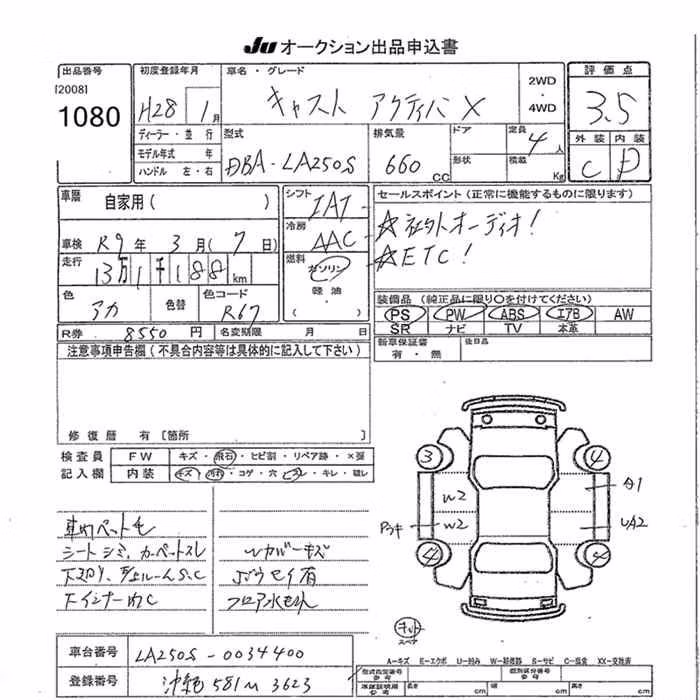 JU オークション出品申込書
出品番号
[2008]
1080
初度登録年月
H28 1月
ディーラー・並行
モデル年式 年
ハンドル 左・右
車名・グレード
キャスト アクティバX
2WD
・
4WD
評価点
3.5
外装 内装
C D
型式
DBA-LA250S
排気量
660 CC
ドア
形状
定員
4人
積載
Kg
車歴
自家用( )
車検 R9年 3月(7日)
走行
13万1千188km
色
アカ
色替
色コード
R67
シフト
IAT
冷房
AAC
燃料
ガソリン
軽油
( )
セールスポイント(正常に機能するものに限ります)
☆社外オーディオ!
☆ETC!
装備品(純正品に限り○を付けてください)
PS PW ABS エアB AW
SR ナビ TV 本革
新車保証書
有・無
後日品
R券 8550円 名変期限 月 日
注意事項申告欄(不具合内容等は具体的に記入して下さい)
修復歴 有[箇所 ]
検査員
記入欄
FW キズ・飛石・ヒビ割・リペア跡・×要
内装 キズ・汚れ・コゲ・穴・スレ・キレ・破レ
車内ペット毛
シートシミ、カーペットスレ
下インナー内C
Wカバーキズ
フロア水モレ
3
4
W2
W2
A1
UA2
4
4
キット
スペア
車台番号 LA250S-0034400
登録番号 沖縄 581 3623
A-キズ E-エクボ U-凹み W-補修跡 S-サビ C-腐食 XX-交換済
型式指定番号
参考
類別区分番号
参考
長さ cm 幅 cm 高さ cm